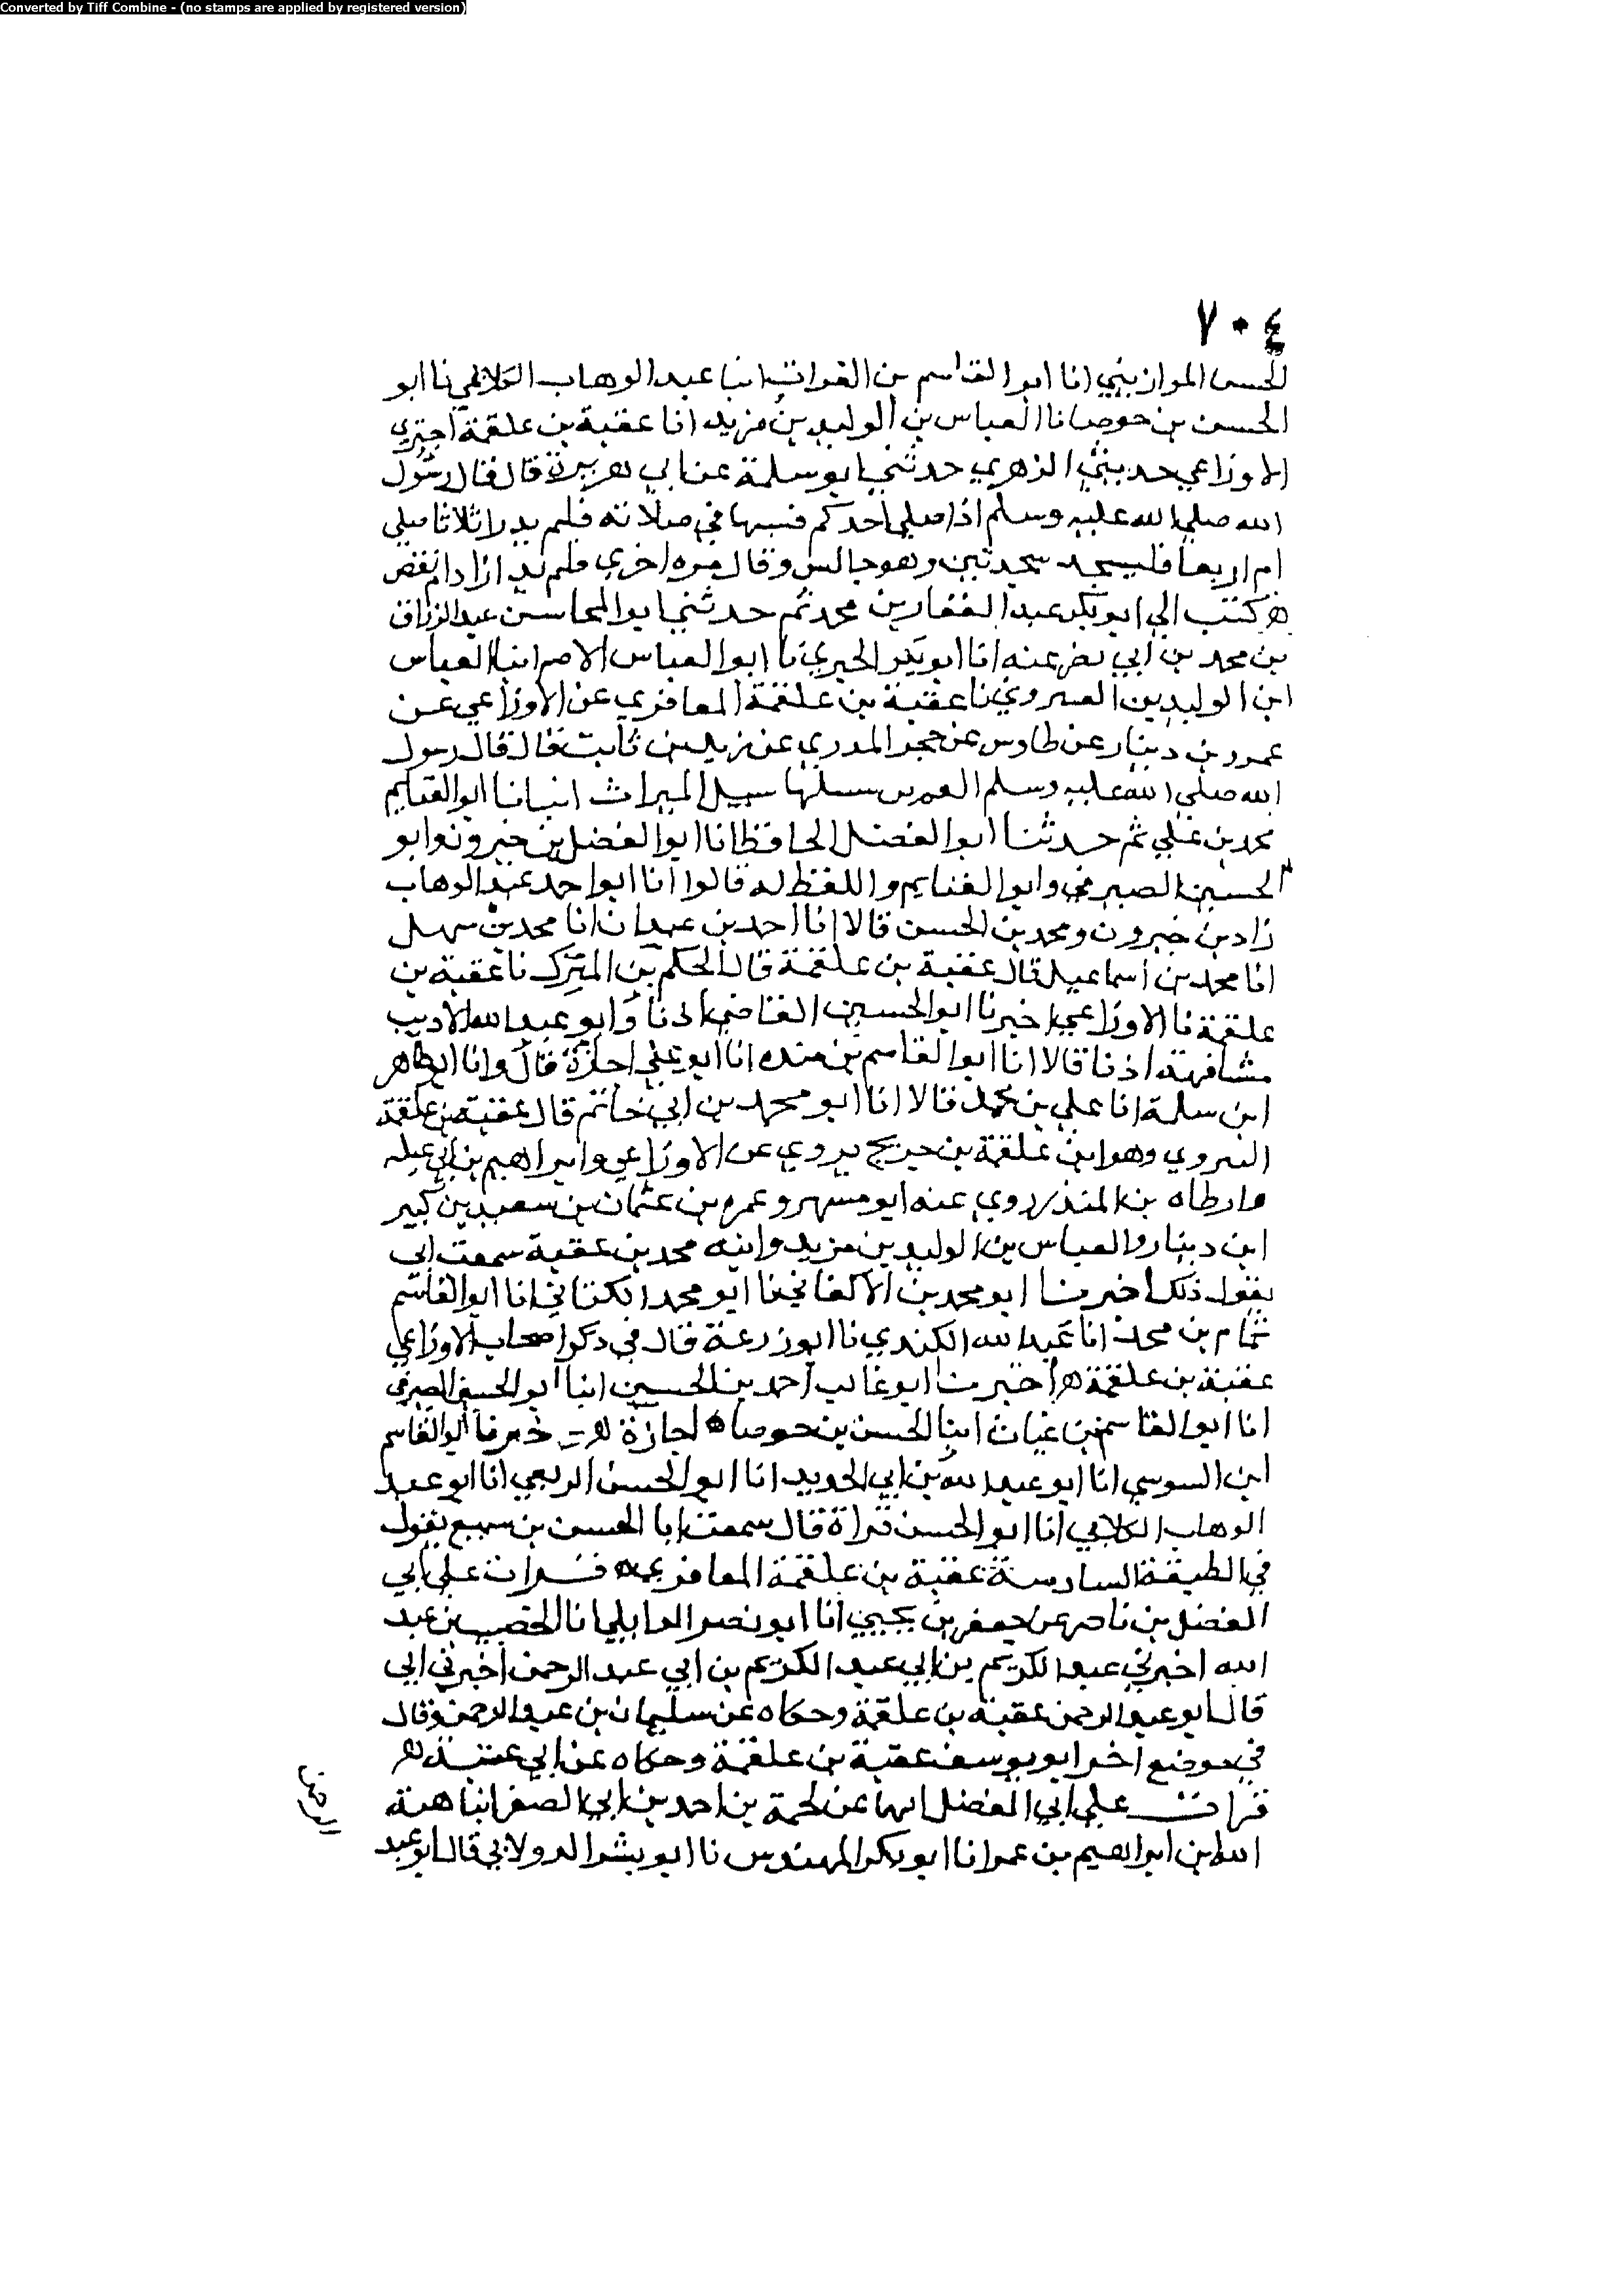 Converted by Tiff Combine - (no stamps are applied by registered version)
٧٠٤
الحسن الموازيني انا ابو القاسم بن الفرات انبا عبد الوهاب الكلابي نا ابو
الحسن بن جوصا نا العباس بن الوليد بن مزيد انا عقبة بن علقمة اخبرني
الاوزاعي حدثني الزهري حدثني ابو سلمة عن ابي هريرة قال قال رسول
الله صلي الله عليه وسلم اذا صلي احدكم فسها في صلاته فلم يدر اثلاثا صلي
ام اربعا فليسجد سجدتين وهو جالس وقال مره اخري فلم يدر ازاد ام نقص
كتب الي ابو بكر عبد الغفار بن محمد ثم حدثني ابو المحاسن عبد الرزاق
بن محمد بن ابي نصر عنه انا ابو بكر الحيري نا ابو العباس الاصم انبا العباس
ابن الوليد بن البيروتي نا عقبة بن علقمة المعافري عن الاوزاعي عن
عمرو بن دينار عن طاوس عن حجر المدري عن زيد بن ثابت قال قال رسول
الله صلي الله عليه وسلم العمري سبيلها سبيل الميراث انبانا ابو الغنايم
محمد بن علي ثم حدثنا ابو الفضل الحافظ انا ابو الفضل بن خيرون وابو
الحسين الصيرفي وابو الغنايم واللفظ له قالوا انا ابو احمد عبد الوهاب
زاد بن خيرون ومحمد بن الحسن قالا انا احمد بن عبدان انا محمد بن سهل
انا محمد بن اسماعيل قال عقبة بن علقمة قال الحكم بن المبرك نا عقبة بن
علقمة نا الاوزاعي اخبرنا ابو الحسين القاضي اذنا وابو عبد الله الاديب
مشافهة اذنا قالا انا ابو القاسم بن منده انا ابو علي اجازة قال وانا ابو طاهر
ابن سلمة انا علي بن محمد قالا انا ابو محمد بن ابي حاتم قال عقبة بن علقمة
البيروتي وهو ابن علقمة بن حديج يروي عن الاوزاعي وابراهيم بن ابي عبله
وارطاه بن المنذر روي عنه ابو مسهر وعمرو بن عثمان بن سعيد بن كثير
ابن دينار والعباس بن الوليد بن مزيد وابنه محمد بن عقبة سمعت ابي
يقول ذلك اخبرنا ابو محمد بن الاكفاني نا ابو محمد الكتاني انا ابو القاسم
تمام بن محمد انا عبد الله الكندي نا ابو زرعة قال في ذكر اصحاب الاوزاعي
عقبة بن علقمة ه اخبرنا ابو غالب احمد بن الحسين انبا ابو الحسين الصيرفي
انا ابو القاسم بن عتاب انبا الحسن بن جوصا ه اجازة ه اخبرنا ابو القاسم
ابن السوسي انا ابو عبد الله بن ابي الحديد انا ابو الحسن الربعي انا ابو عبد
الوهاب الكلابي انا ابو الحسن قراة قال سمعت ابا الحسن بن سميع يقول
في الطبقة السادسة عقبة بن علقمة المعافري ه قرات علي ابي
الفضل بن ناصر عن جعفر بن يحيي انا ابو نصر الوايلي انا الخصيب بن عبد
الله اخبرني عبد الكريم بن ابي عبد الكريم بن ابي عبد الرحمن اخبرني ابي
قال ابو عبد الرحمن عقبة بن علقمة وحكاه عن سليمان بن عبد الرحمن وقال
في موضع اخر ابو يوسف عقبة بن علقمة وحكاه عن ابي عتبة ه
قرات علي ابي الفضل ايضا عن محمد بن احمد بن ابي الصقر انبا هبة
الله بن ابراهيم بن عمر انا ابو بكر المهندس نا ابو بشر الدولابي قال ابو عبد
الرحمن